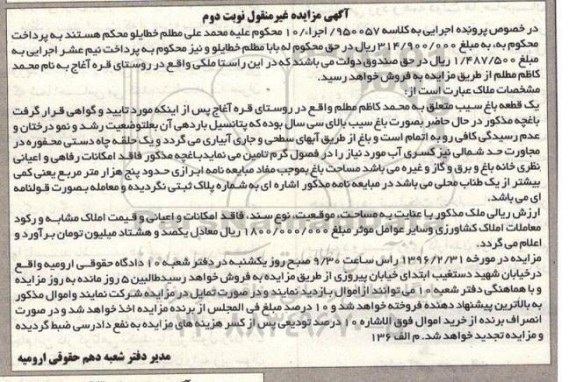 آگهی مزایده غیرمنقول نوبت دوم
در خصوص پرونده اجرایی به کلاسه ۹۵۰۰۵۷/ اجراء/۱۰ محکوم علیه محمد علی مظلم خطایلو محکم هستند به پرداخت
محکوم به، به مبلغ ۳۱۴/۹۰۰/۰۰۰ ریال در حق محکوم له بابا مظلم خطایلو و نیز محکوم به پرداخت نیم عشر اجرایی به
مبلغ ۱/۴۸۷/۵۰۰ ریال در حق صندوق دولت می باشند که در این راستا ملکی واقع در روستای قره آغاج به نام محمد
کاظم مظلم از طریق مزایده به فروش خواهد رسید.
مشخصات ملاک عبارت است از:
یک قطعه باغ سیب متعلق به محمد کاظم مظلم واقع در روستای قره آغاج پس از اینکه مورد تایید و گواهی قرار گرفت
باغچه مذکور در حال حاضر بصورت باغ سیب بالای سی سال بوده که پتانسیل باردهی آن بعلت وضعیت رشد و نمو درختان و
عدم رسیدگی کافی رو به اتمام است و باغ از طریق آبهای سطحی و جاری آبیاری می گردد و یک حلقه چاه دستی محفوره در
مجاورت حد شمالی نیز کسری آب مورد نیاز را در فصول گرم تامین می نماید باغچه مذکور فاقد امکانات رفاهی و اعیانی
نظری خانه باغ و برق و گاز و غیره می باشد مساحت باغ بموجب مفاد مبایعه نامه ابرازی حدود پنج هزار متر مربع یعنی کمی
بیشتر از یک طناب محلی می باشد در مبایعه نامه مذکور اشاره ای به شماره پلاک ثبتی نگردیده و معامله بصورت قولنامه
ای می باشد.
ارزش ریالی ملک مذکور با عنایت به مساحت، موقعیت، نوع سند، فاقد امکانات و اعیانی و قیمت املاک مشابه و رکود
معاملات املاک کشاورزی و سایر عوامل موثر مبلغ ۱/۸۰۰/۰۰۰/۰۰۰ ریال معادل یکصد و هشتاد میلیون تومان برآورد و
اعلام می گردد.
مزایده در مورخه ۱۳۹۶/۲/۳۱ راس ساعت ۹/۳۰ صبح روز یکشنبه در دفتر شعبه ۱۰ دادگاه حقوقی ارومیه واقع
در خیابان شهید دستغیب ابتدای خیابان پیروزی از طریق مزایده به فروش خواهد رسید طالبین ۵ روز مانده به روز مزایده
و با هماهنگی دفتر شعبه ۱۰ می توانند از اموال بازدید نمایند و در صورت تمایل در مزایده شرکت نمایند و اموال مذکور
به بالاترین پیشنهاد دهنده فروخته خواهد شد و ۱۰ درصد مبلغ فی المجلس از برنده مزایده اخذ خواهد شد و در صورت
انصراف برنده از خرید اموال فوق الاشاره ۱۰ درصد تودیعی پس از کسر هزینه های مزایده به نفع دادرسی ضبط گردیده
و مزایده تجدید خواهد شد. م الف ۱۳۶
مدیر دفتر شعبه دهم حقوقی ارومیه